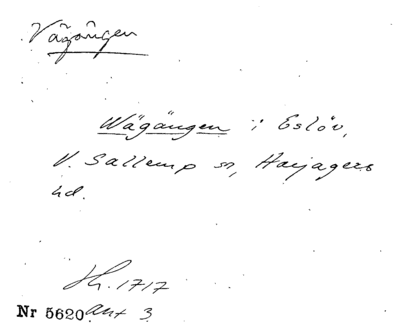 Vägången
Wägängen i Eslöv,
V. Sallerup sn, Harjagers
hd.
Hh. 1717
Nr 5620 ant 3